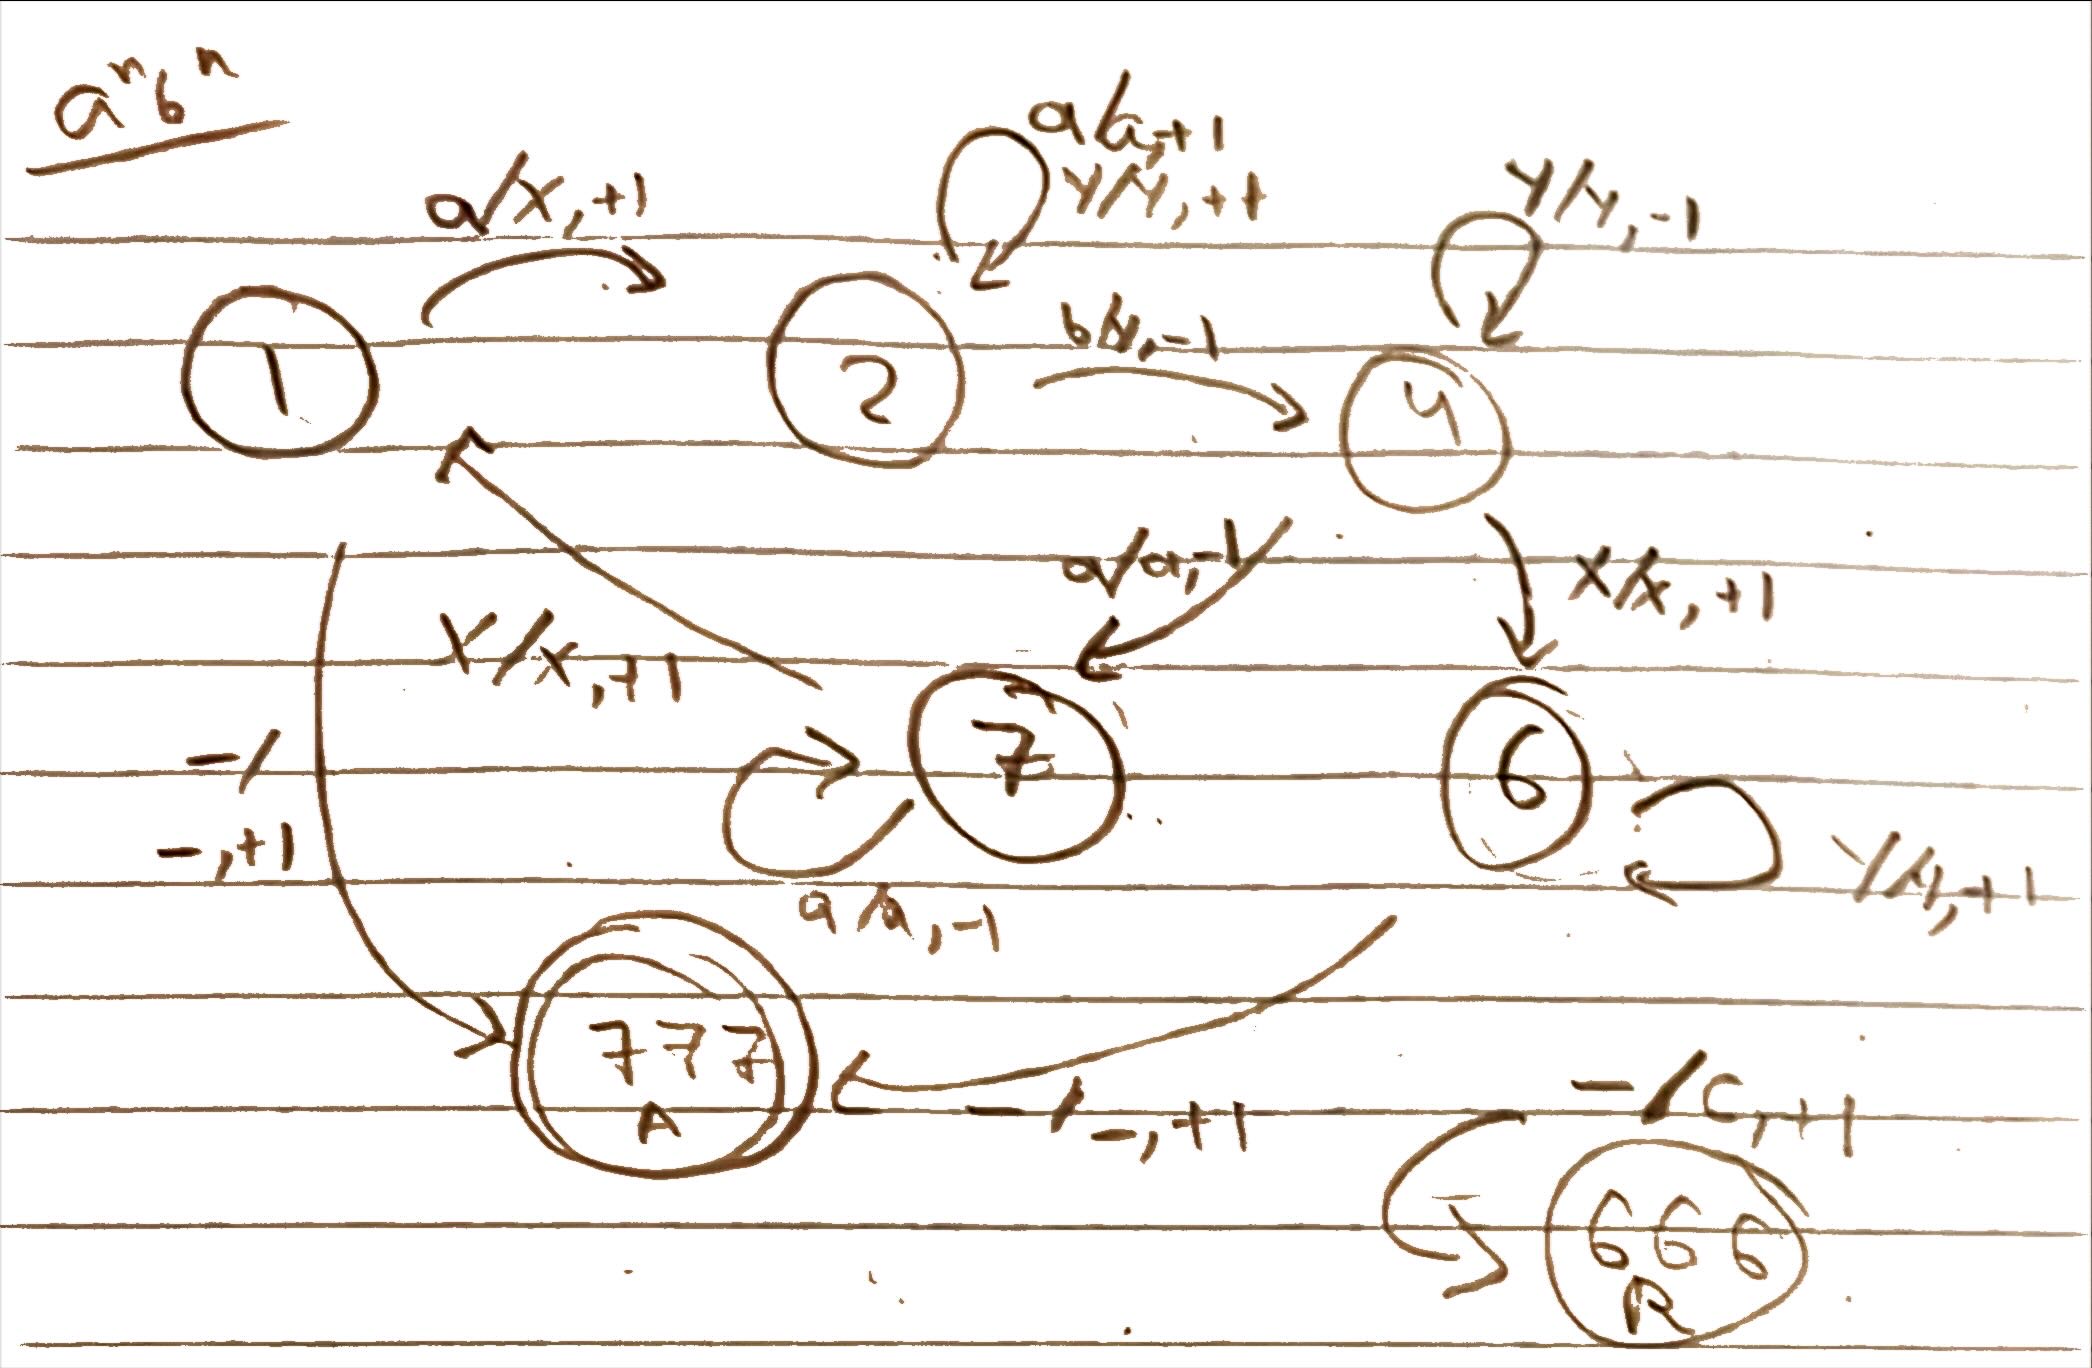 aⁿbⁿ
a/X,+1
a/a,+1
Y/Y,+1
Y/Y,-1
b/Y,-1
1
2
4
a/a,-1
X/X,+1
X/X,+1
7
6
-/
-,+1
a/a,-1
Y/Y,+1
777
A
-/-,+1
-/C,+1
666
R